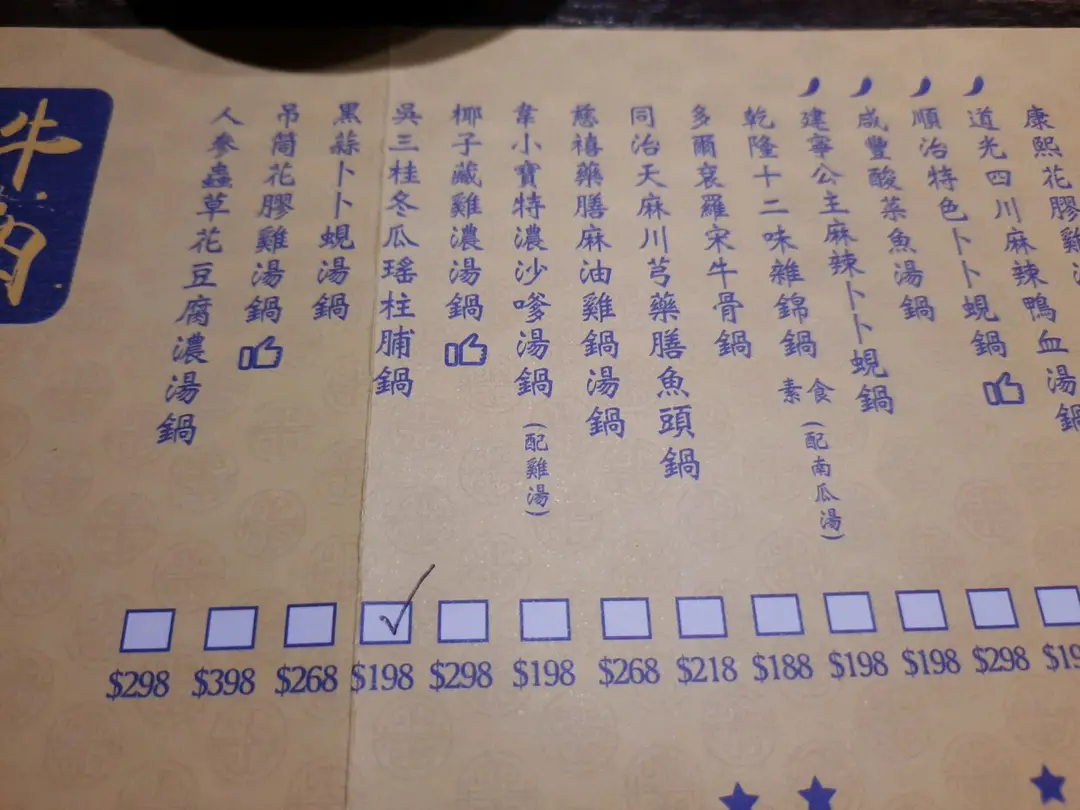 康熙花膠雞湯
道光四川麻辣鴨血湯鍋
順治特色卜卜蜆鍋
咸豐酸菜魚湯鍋
建寧公主麻辣卜卜蜆鍋
乾隆十二味雜錦鍋
素食
(配南瓜湯)
多爾袞羅宋牛骨鍋
同治天麻川芎藥膳魚頭鍋
慈禧藥膳麻油雞鍋湯鍋
韋小寶特濃沙嗲湯鍋
(配雞湯)
椰子藏雞濃湯鍋
吳三桂冬瓜瑤柱脯鍋
黑蒜卜卜蜆湯鍋
吊筒花膠雞湯鍋
人參蟲草花豆腐濃湯鍋
牛肉
$298 $398 $268 $198 $298 $198 $268 $218 $188 $198 $198 $298